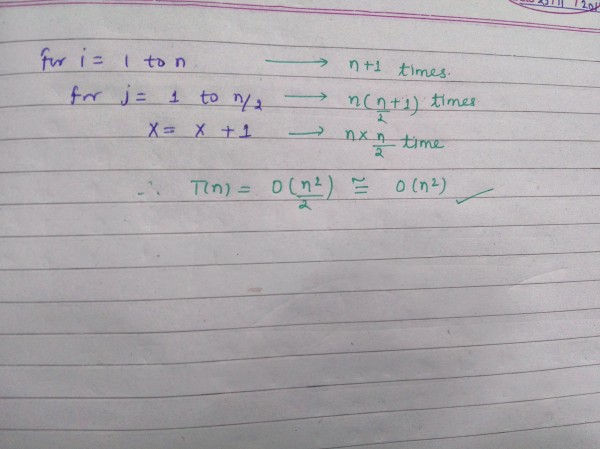 for i = 1 to n → n+1 times.
for j = 1 to n/2 → n(n/2+1) times
x = x + 1 → n × n/2 time
∴ T(n) = O(n²/2) ≅ O(n²) ✓